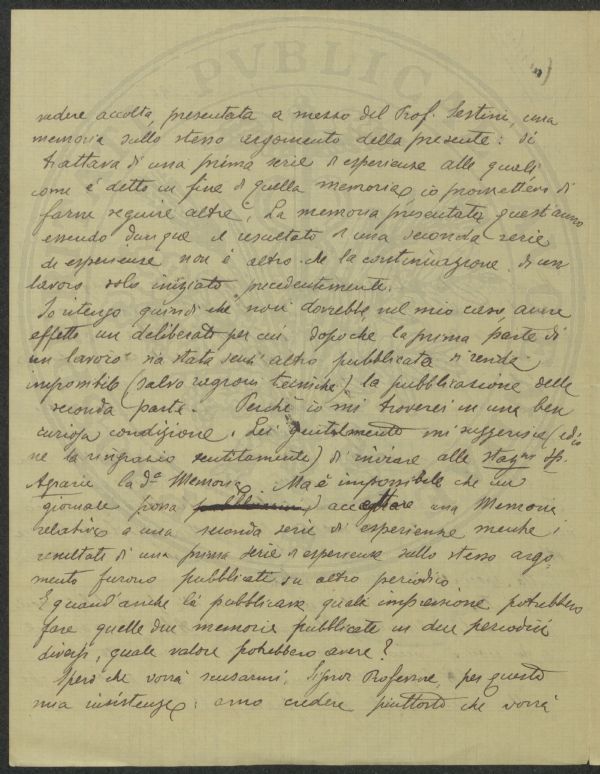 PVBLICA
vedere accolta, presentata a mezzo del Prof. Sestini, una
memoria sullo stesso argomento della presente: si
trattava di una prima serie di esperienze alle quali
come è detto in fine di quella memoria, io promettevo di
farne seguire altre. La memoria presentata quest'anno
essendo dunque il resultato di una seconda serie
di esperienze non è altro che la continuazione di un
lavoro solo iniziato precedentemente.
Io ritengo quindi che non dovrebbe nel mio caso, avere
effetto un deliberato per cui dopo che la prima parte di
un lavoro sia stata senz'altro pubblicata si rende
impossibile (salvo ragioni tecniche) la pubblicazione della
seconda parte. Perchè io mi troverei in una ben
curiosa condizione. Lei gentilmente mi suggerisce (ed io
ne la ringrazio sentitamente) di inviare alle staz.ni sp.
Agrarie la d.a Memoria. Ma è impossibile che un
giornale possa accettare una Memoria
relativa a una seconda serie di esperienze mentre i
resultati di una prima serie di esperienze sullo stesso argo-
mento furono pubblicati su altro periodico.
E quand'anche la pubblicasse quale impressione potrebbero
fare quelle due memorie pubblicate in due periodici
diversi, quale valore potrebbero avere?
Spero che vorrà scusarmi, Signor Professore, per questa
mia insistenza: amo credere piuttosto che vorrà